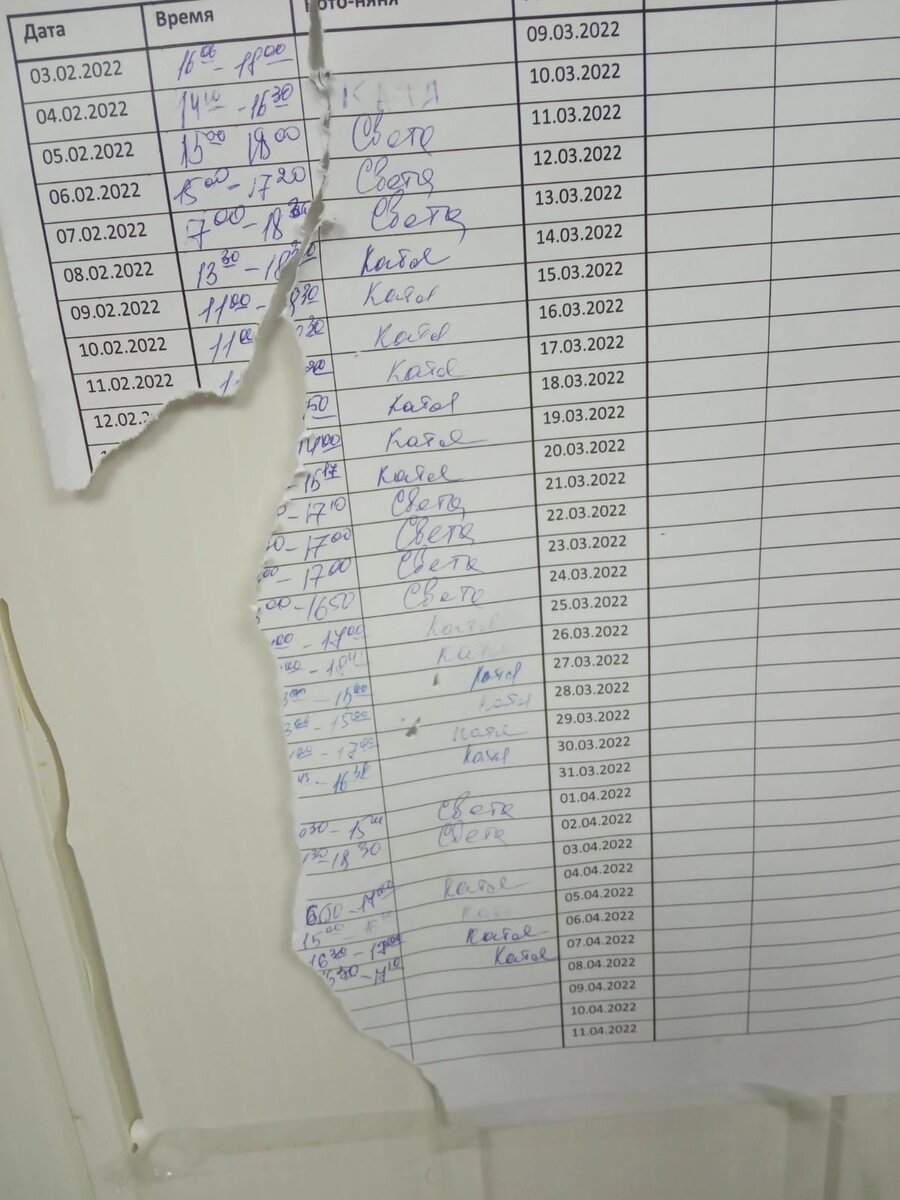 Дата Время ото-няня
03.02.2022 16 00 - 18 00 09.03.2022
04.02.2022 14 10 - 16 30 КАТЯ 10.03.2022
05.02.2022 15 00 18 00 Света 11.03.2022
06.02.2022 15 00 - 17 20 Света 12.03.2022
07.02.2022 7 00 - 18 30 Света 13.03.2022
08.02.2022 13 30 - 18 30 Катя 14.03.2022
09.02.2022 11 00 - 8 30 Катя 15.03.2022
10.02.2022 11 00 30 Катя 16.03.2022
11.02.2022 Катя 17.03.2022
12.02. 50 Катя 18.03.2022
14 00 Катя 19.03.2022
- 15 17 Катя 20.03.2022
- 17 10 Света 21.03.2022
- 17 00 Света 22.03.2022
00 - 17 00 Света 23.03.2022
00 - 16 50 Света 24.03.2022
00 - 17 00 Катя 25.03.2022
00 - 18 26.03.2022
00 - 15 40 Катя 27.03.2022
3 00 - 15 00 Катя 28.03.2022
- 17 00 Катя 29.03.2022
45 - 16 30 Катя 30.03.2022
31.03.2022
030 - 15 Света 01.04.2022
30 - 18 30 Света 02.04.2022
03.04.2022
- 17 00 Катя 04.04.2022
15 00 16 05.04.2022
16 30 - 17 00 Катя 06.04.2022
530 - 17 10 Катя 07.04.2022
08.04.2022
09.04.2022
10.04.2022
11.04.2022